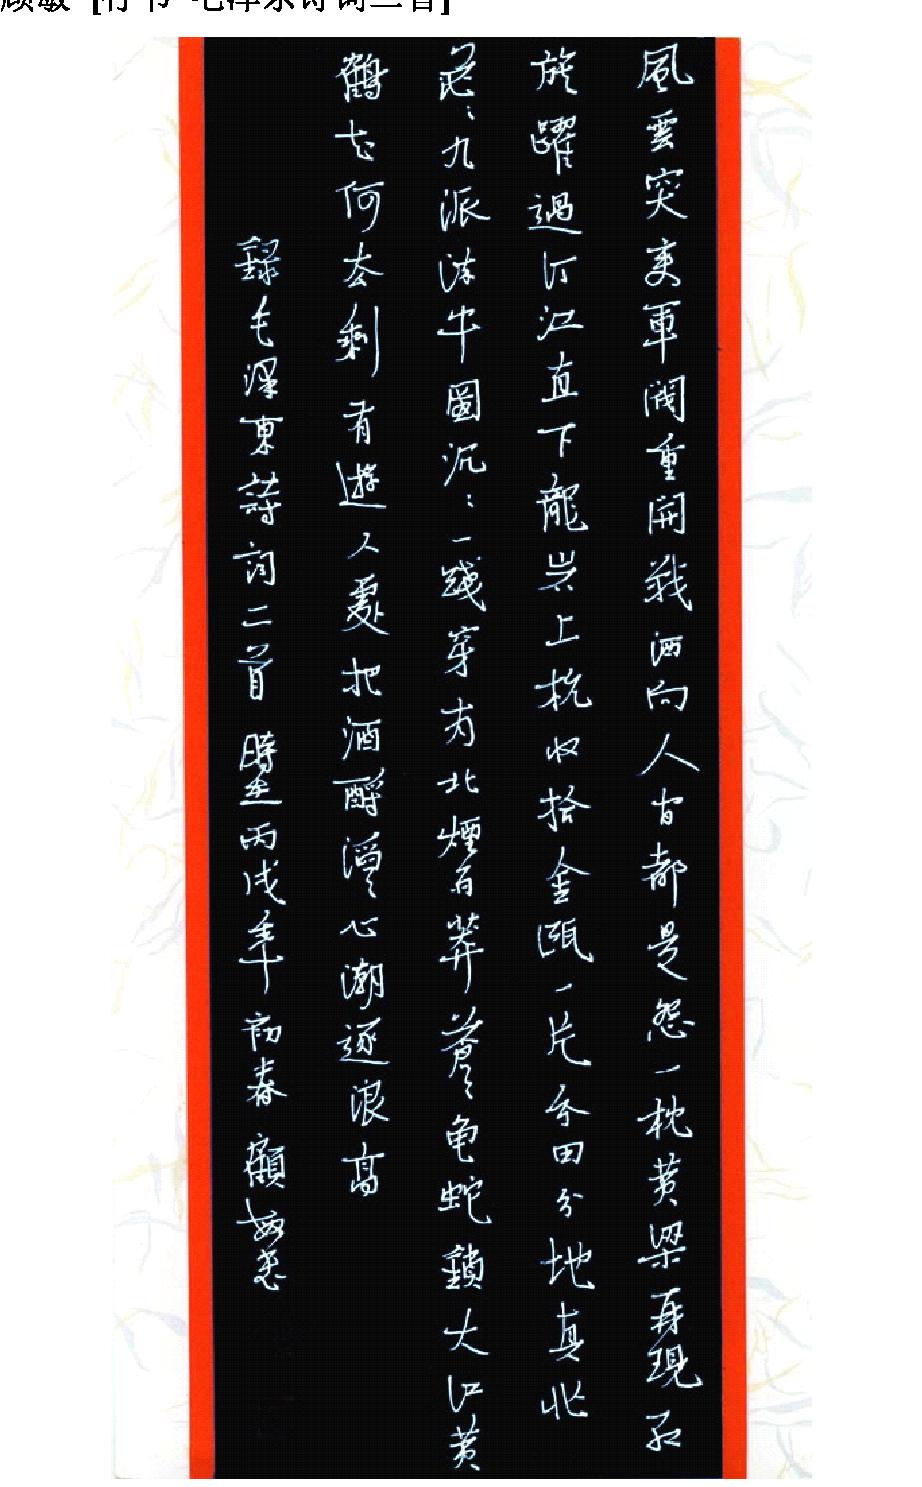 顾敏 [行书 毛泽东诗词二首]
風雲突变軍閥重開戰洒向人间都是怨一枕黄梁再現红
旗躍過汀江直下龍岩上杭收拾金甌一片分田分地真忙
茫〻九派流中國沉〻一綫穿南北煙雨莽蒼〻龟蛇鎖大江黄
鶴知何去剩有遊人處把酒酹滔〻心潮逐浪高
録毛澤東詩詞二首時在丙戌年初春顧敏書